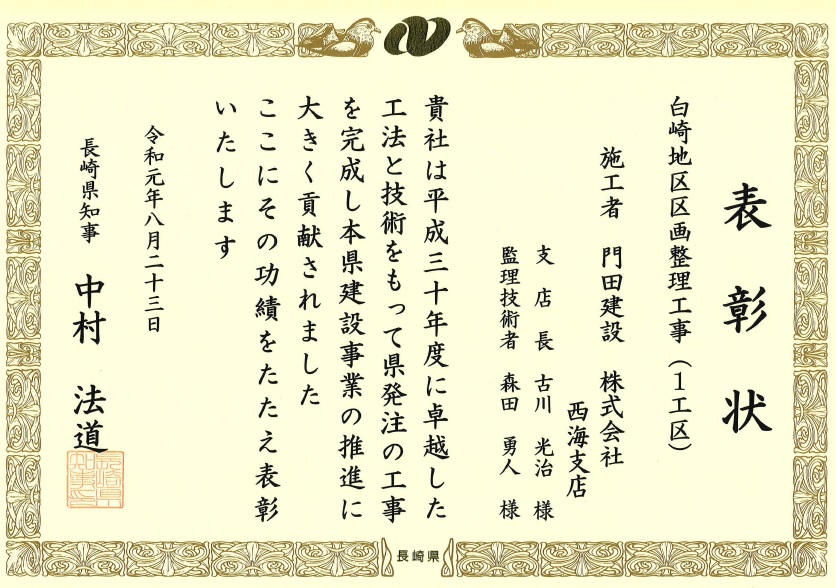 表彰状
白崎地区区画整理工事（１工区）
施工者　門田建設　株式会社
西海支店
支店長　古川　光治　様
監理技術者　森田　勇人　様
貴社は平成三十年度に卓越した
工法と技術をもって県発注の工事
を完成し本県建設事業の推進に
大きく貢献されました
ここにその功績をたたえ表彰
いたします
令和元年八月二十三日
長崎県知事　中村　法道
長崎県
知事印
長崎県